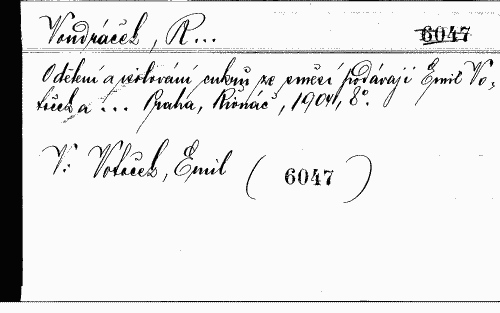 Vondráček, R... 6047
O dělení a isolování cukrů ze směsí podávají Emil Vo-
toček a ... Praha, Řivnáč, 1904, 8°.
V: Votoček, Emil (6047)